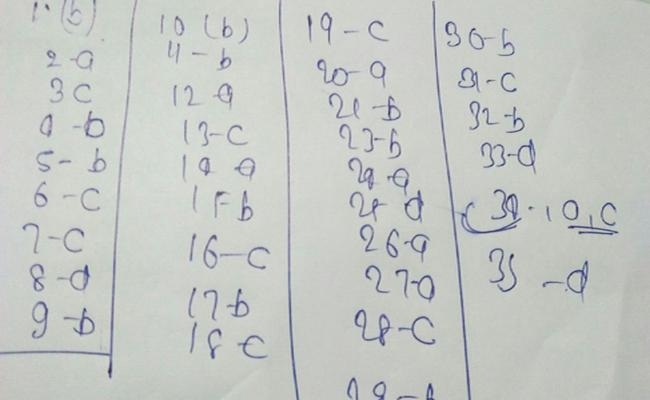 1. (b)
2-a
3 C
4-b
5- b
6 - C
7-C
8-d
9-b
10 (b)
11-b
12-a
13-C
14 a
15 b
16-C
17 b
18 C
19-C
20-a
21-b
23-b
24-a
25 d
26-a
27-a
28-C
29-b
30-b
31-C
32-b
33-d
34-, a, C
35 -d